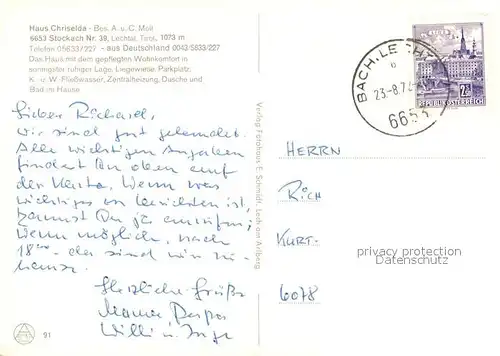 Haus Chriselda - Bes. A. u. C. Moll
6653 Stockach Nr. 39, Lechtal, Tirol, 1073 m
Telefon 05633/227 - aus Deutschland 0043/5633/227
Das Haus mit dem gepflegten Wohnkomfort in
sonnigster ruhiger Lage, Liegewiese, Parkplatz,
K.- u. W.-Fließwasser, Zentralheizung, Dusche und
Bad im Hause
Lieber Richard,
wir sind gut gelandet.
Alle wichtigen Angaben
findest Du oben auf
der Karte. Wenn was
wichtiges zu berichten ist,
kannst Du ja anrufen;
Wenn möglich, nach
18⁰⁰ - da sind wir zu
hause.
Herzliche Grüße
Mama
Willi u. Inge
91
Verlag Fotohaus E. Schmidt, Lech am Arlberg
BACH, LECHT
b
23.-8.7
6654
REPUBLIK ÖSTERREICH
HERRN
RICH
KURT-
6078
privacy protection
Datenschutz